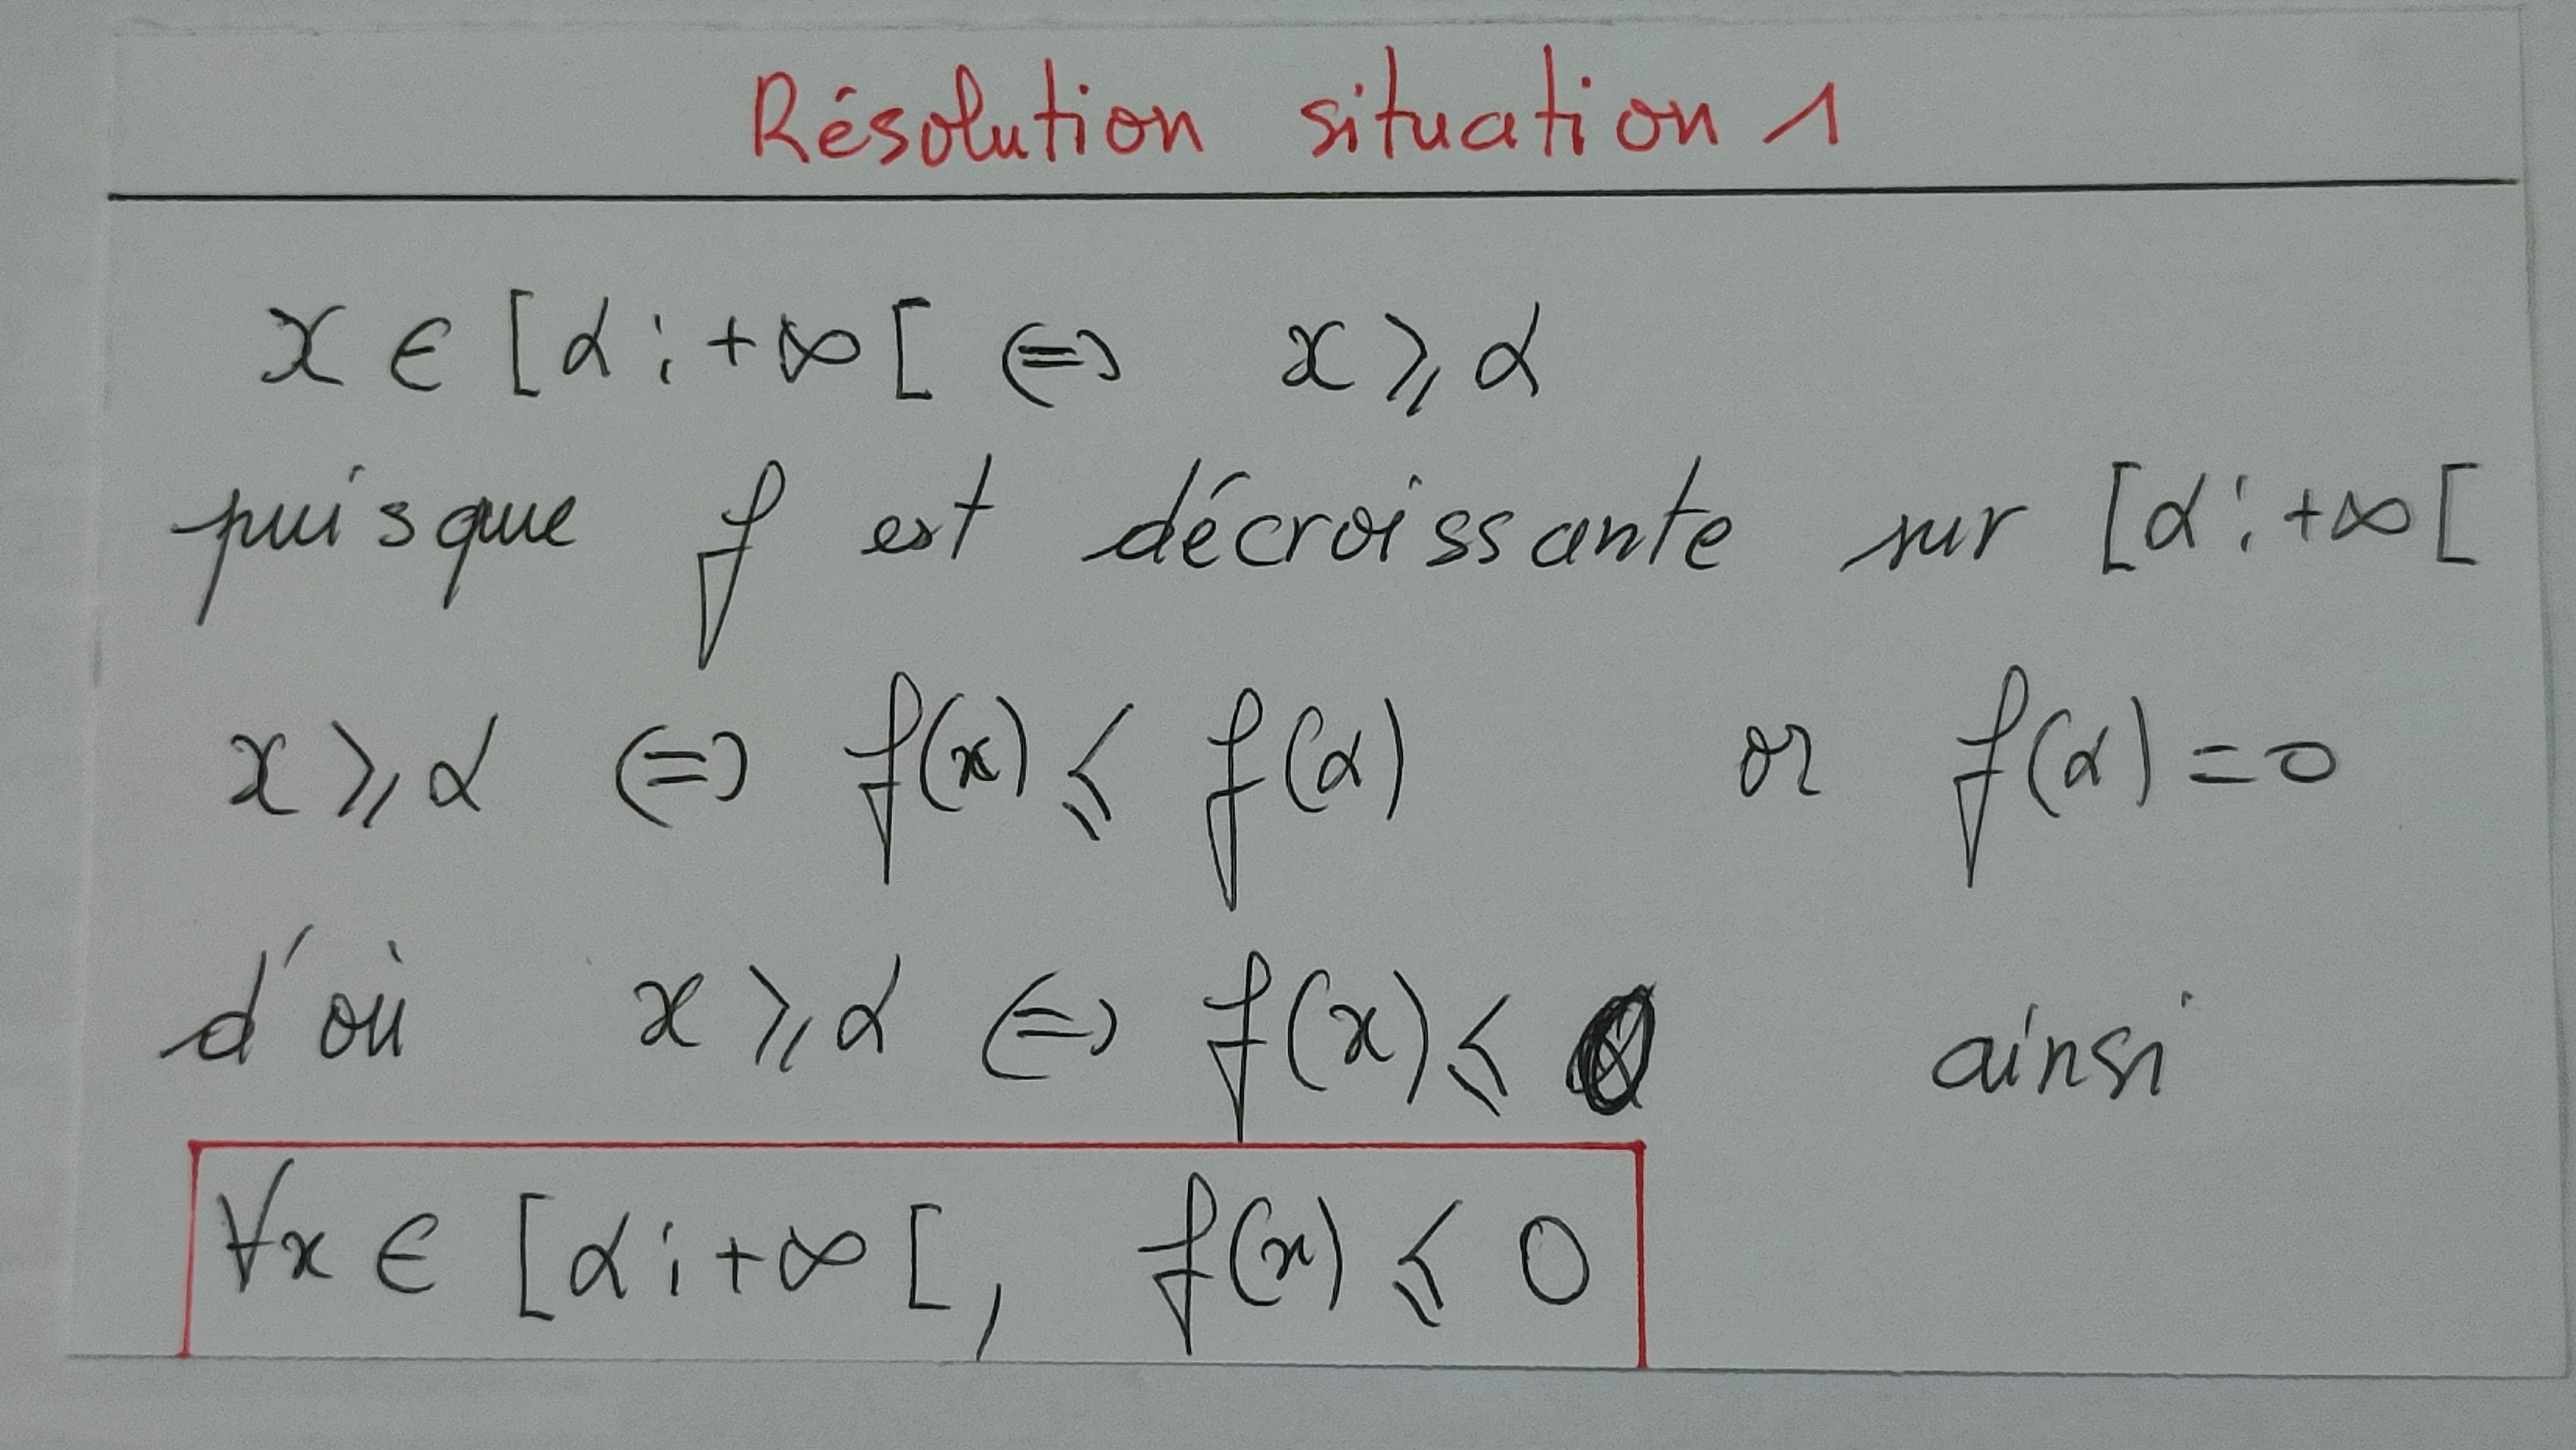 Résolution situation 1
x ∈ [α ; +∞ [ ⟺ x ⩾ α
puisque f est décroissante sur [α ; +∞ [
x ⩾ α ⟺ f(x) ⩽ f(α) or f(α) = 0
d'où x ⩾ α ⟺ f(x) ⩽ 0 ainsi
∀x ∈ [α ; +∞ [ , f(x) ⩽ 0